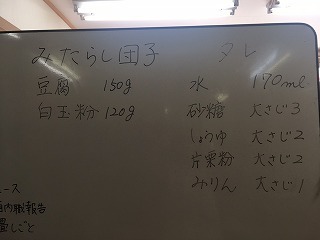 みたらし団子
豆腐 150g
白玉粉 120g
タレ
水 170ml
砂糖 大さじ3
しょうゆ 大さじ2
片栗粉 大さじ2
みりん 大さじ1
ース
内職報告
しごと